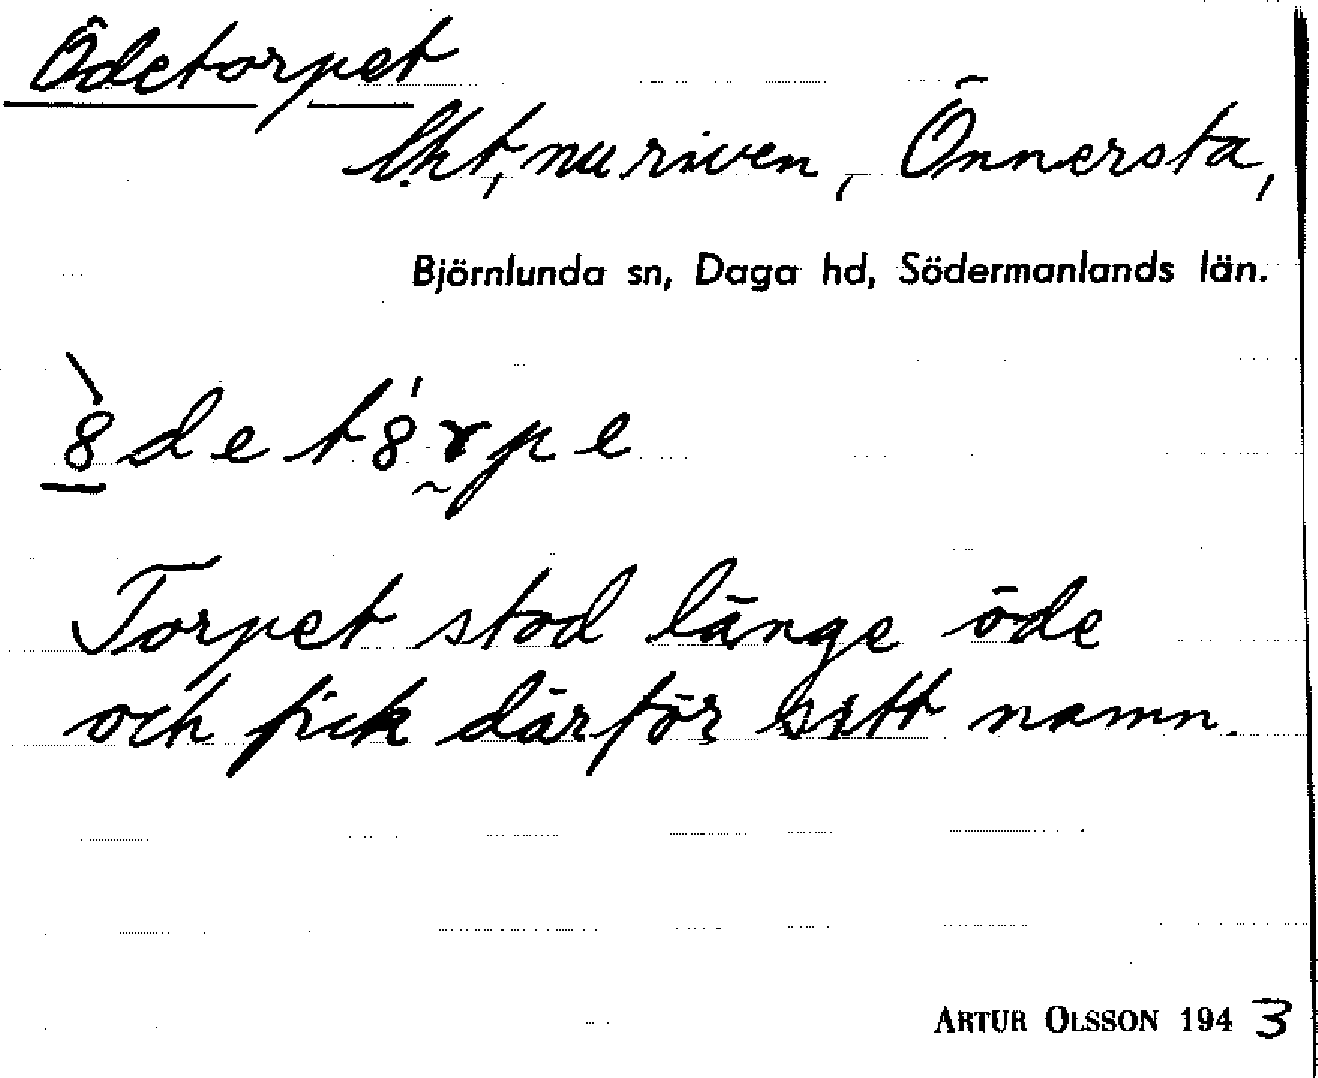 Ödetorpet
lht, nu riven, Önnersta,
Björnlunda sn, Daga hd, Södermanlands län.
Torpet stod länge öde
och fick därför sitt namn.
ARTUR OLSSON 1943